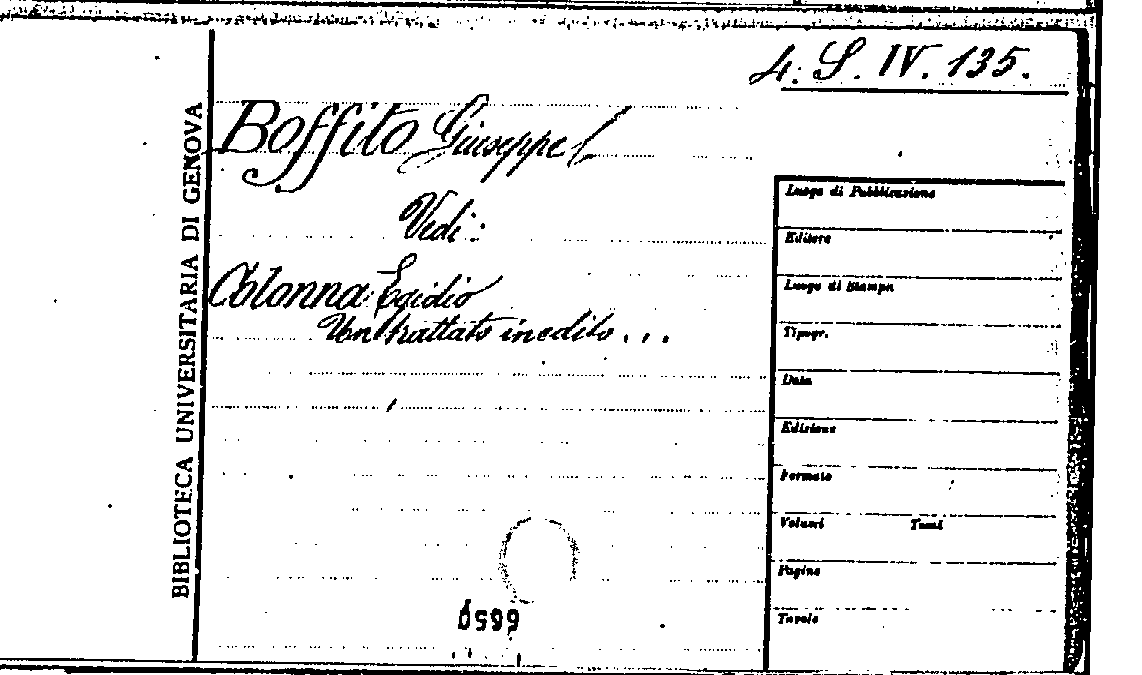 4. S. IV. 135.
BIBLIOTECA UNIVERSITARIA DI GENOVA
Boffito Giuseppe
Vedi:
Colonna Egidio
Un trattato inedito...
Luogo di Pubblicazione
Editore
Luogo di Stampa
Tipogr.
Data
Edizione
Formato
Volumi Tomi
Pagine
Tavole